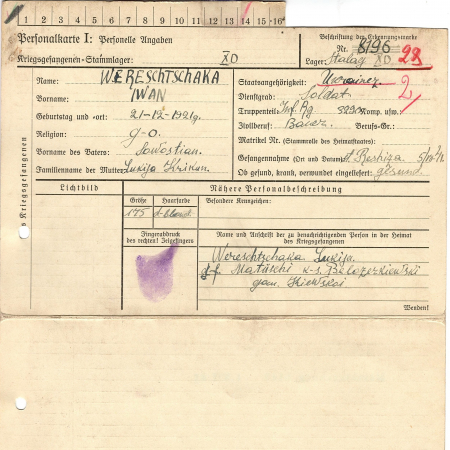 1 2 3 4 5 6 7 8 9 10 11 12 13 14 15 16
Personalkarte I: Personelle Angaben
Kriegsgefangenen-Stammlager: XD
Beschriftung der Erkennungsmarke
Nr. 8196
Lager: Stalag XD
Name: WERESCHTSCHAKA
Vorname: IWAN
Geburtstag und -ort: 21-12-1921g.
Religion: g-o.
Vorname des Vaters: Sowostian.
Familienname der Mutter: Lukija Krikun.
Staatsangehörigkeit: Ukrainez 2
Dienstgrad: Soldat
Truppenteil: Inf. Rg. Komp. usw.
Zivilberuf: Bauer. Berufs-Gr.:
Matrikel Nr. (Stammrolle des Heimatstaates)
Gefangennahme (Ort und Datum):
Ob gesund, krank, verwundet eingeliefert: gesund.
s Kriegsgefangenen
Lichtbild
Nähere Personalbeschreibung
Größe Haarfarbe Besondere Kennzeichen:
175 d-blond
Fingerabdruck
des rechten! Zeigefingers
Name und Anschrift der zu benachrichtigenden Person in der Heimat
des Kriegsgefangenen
Wereschtschaka Lukija.
Belozerkiewski
Wenden!